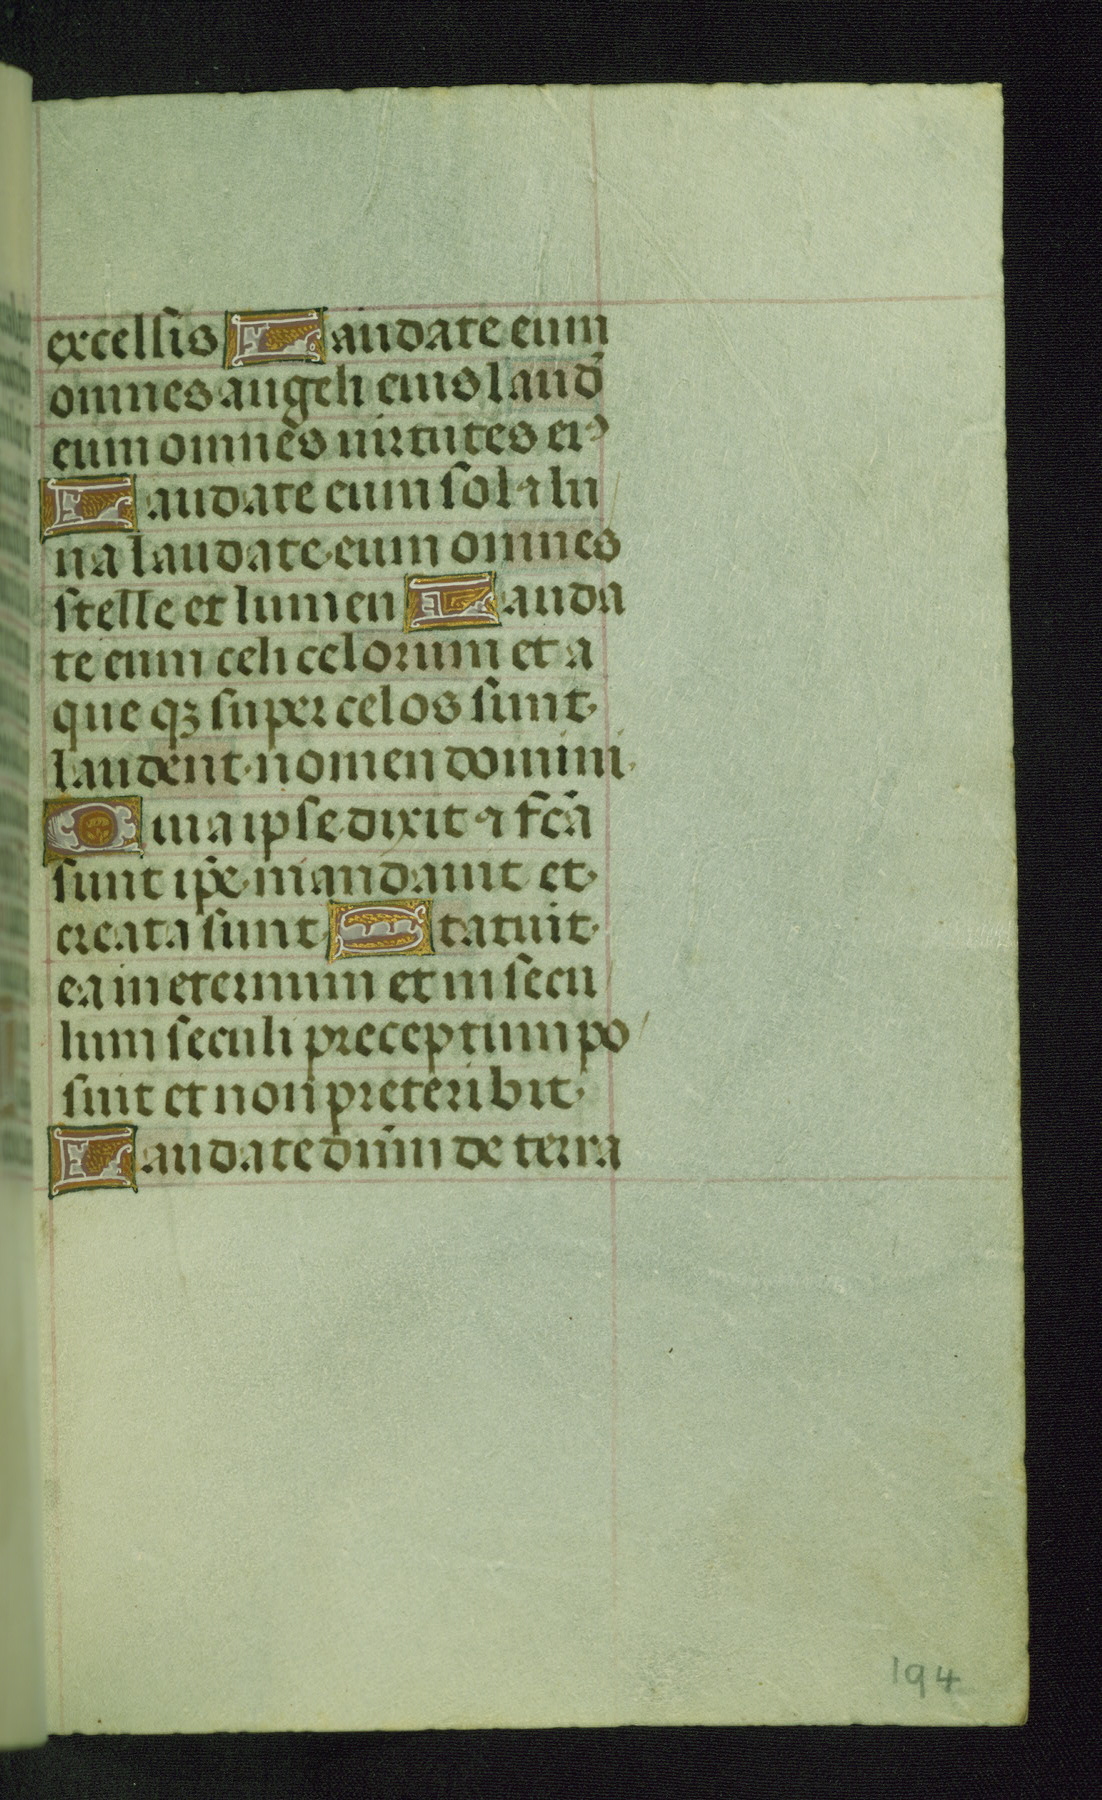 excelsis Laudate eum
omnes angeli eius laud̉
eum omnes uirtutes eiꝰ
Laudate eum sol ⁊ lu
na laudate eum omnes
stelle et lumen Lauda
te eum celi celorum et a
que qꝫ super celos sunt
laudent nomen domini
Quia ipse dixit ⁊ fc̃a
sunt ip̃e mandauit et
creata sunt Statuit
ea in eternum et in secu
lum seculi preceptum po
suit et non preteribit
Laudate dn̄m de terra
194